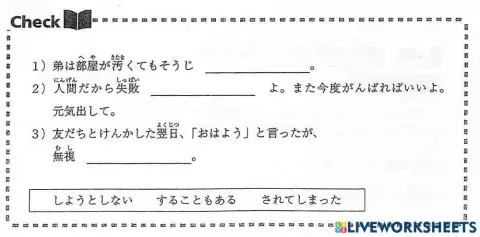 Check
1）弟は部屋が汚くてもそうじ ____________。
2）人間だから失敗 ____________ よ。また今度がんばればいいよ。
元気出して。
3）友だちとけんかした翌日、「おはよう」と言ったが、
無視 ____________。
しようとしない　することもある　されてしまった
LIVEWORKSHEETS